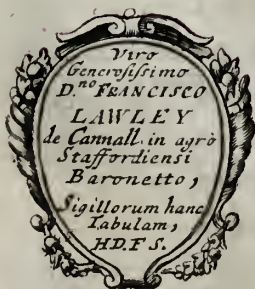 Viro
Generosissimo
D.no FRANCISCO
LAWLEY
de Cannall. in agrò
Staffordiensi
Baronetto,
Sigillorum hanc
Tabulam,
HD.FS.